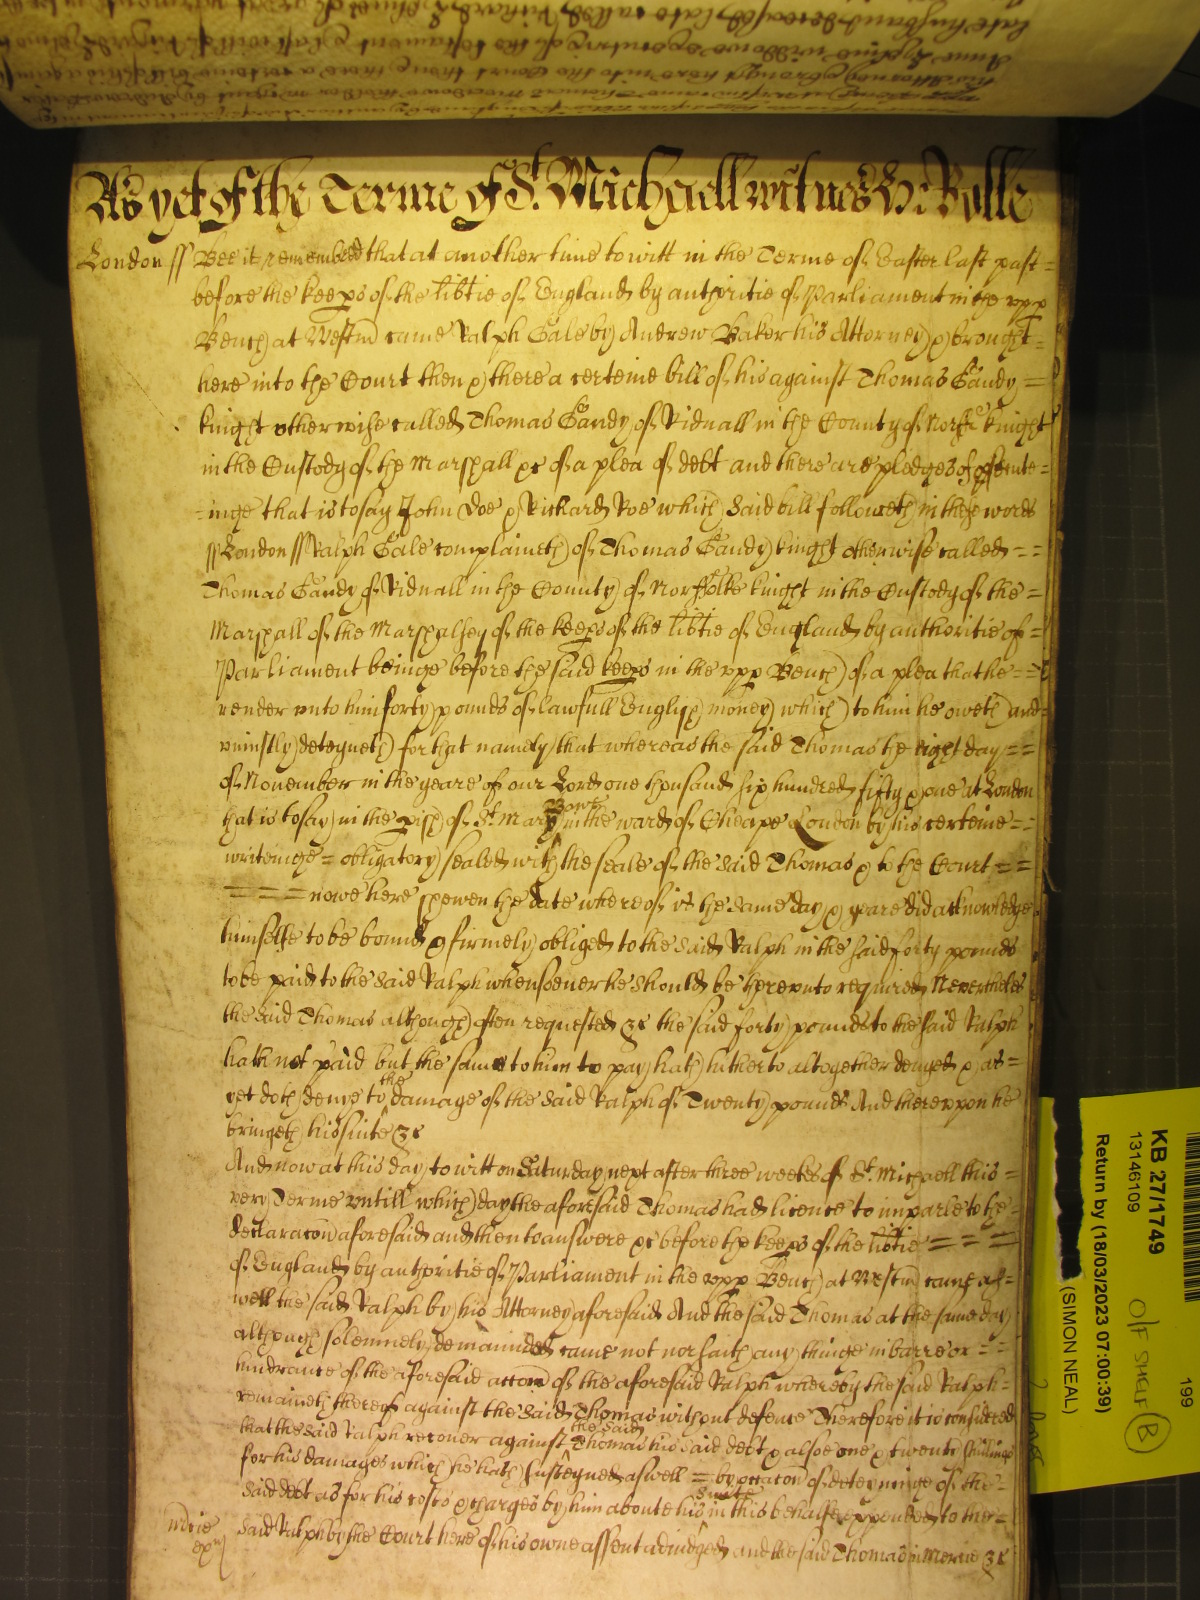 As yet of the Terme of St. Michaell witnes H: Rolle
London ss Bee it remembred that at another time to witt in the Terme of Easter last past =
before the keeps of the libtie of England by authoritie of Parliament in the upp
Bench at Westm came Ralph Gale by Andrew Baker his Attorney & brought =
here into the Court then & there a certeine bill of his against Thomas Gandy =
knight otherwise called Thomas Gandy of in the County of Norff knight
in the Custody of the Marshall &c of a plea of debt and there are pledges of =
= inge that is to say John Doe & Richard Roe which said bill followeth in these words
ss London ss Ralph Gale complaineth of Thomas Gandy knight otherwise called = =
Thomas Gandy of in the County of Norffolke knight in the Custody of the =
Marshall of the Marshalsey of the keeps of the libtie of England by authoritie of =
Parliament beinge before the said keeps in the upp Bench of a plea that he = =
render unto him forty pounds of lawfull English money which to him he oweth and =
uniustly deteyneth for that namely that whereas the said Thomas the eight day = =
of November in the yeare of our Lord one thousand six hundred fifty & one at London
that is to say in the pish of St. Mary Bowe in the ward of Cheape London by his certeine = =
writeinge = obligatory sealed with the seale of the said Thomas & to the Court = =
= = = = nowe here shewen the date whereof is the same day & yeare did acknowledge
himselfe to be bound & firmely obliged to the said Ralph in the said forty pounds
to be paid to the said Ralph whensoever he should be thereunto required Neverthelesse
the said Thomas although often requested &c the said forty pounds to the said Ralph
hath not paid but the same to him to pay hath hitherto altogether denyed & as =
yet doth denye to the damage of the said Ralph of Twenty pounds And thereupon he
bringeth his suite &c
And now at this day to witt on Saturday next after three weekes of St. Michaell this =
very Terme untill which day the aforesaid Thomas had licence to imparle to the =
declaracon aforesaid and then to answere &c before the keeps of the libtie = = = =
of England by authoritie of Parliament in the upp Bench at Westm came as =
well the said Ralph by his Attorney aforesaid And the said Thomas at the same day
although solemnely demaunded came not nor saith any thinge in barre or = =
hindrance of the aforesaid accon of the aforesaid Ralph whereby the said Ralph =
remaineth thereof against the said Thomas without defence Therefore it is considered
that the said Ralph recover against the said Thomas his said debt & alsoe one & twenty shillings
for his damages which he hath susteyned aswell = by occacon of deteyninge of the =
said debt as for his costs & charges by him about his suite in this behalfe expended to the =
said Ralph by the Court here of his owne assent adiudged and the said Thomas in Mercie &c
mcie
KB 27/1749
13146109
Return by (18/03/2023 07:00:39)
(SIMON NEAL)
O/F SHELF B
199